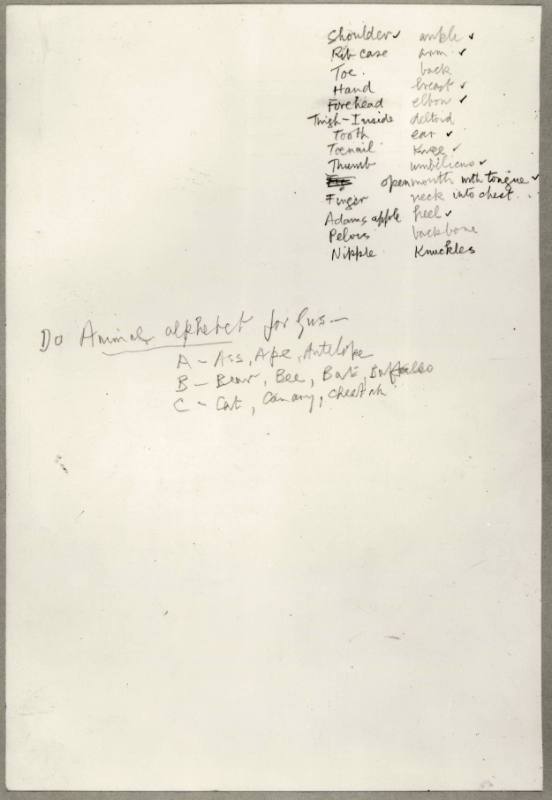 Shoulder ✓ ankle ✓
Rib case arm ✓
Toe. back
Hand breast ✓
Forehead elbow ✓
Thigh-Inside deltoid
Tooth ear ✓
Toenail Knee ✓
Thumb umbilicus ✓
open mouth with tongue ✓
Finger neck into chest...
Adams apple heel ✓
Pelvis backbone
Nipple Knuckles
Do Animals alphabet for Gus—
A - Ass, Ape, Antelope
B - Bear, Bee, Bat, Buffalo
C - Cat, Canary,